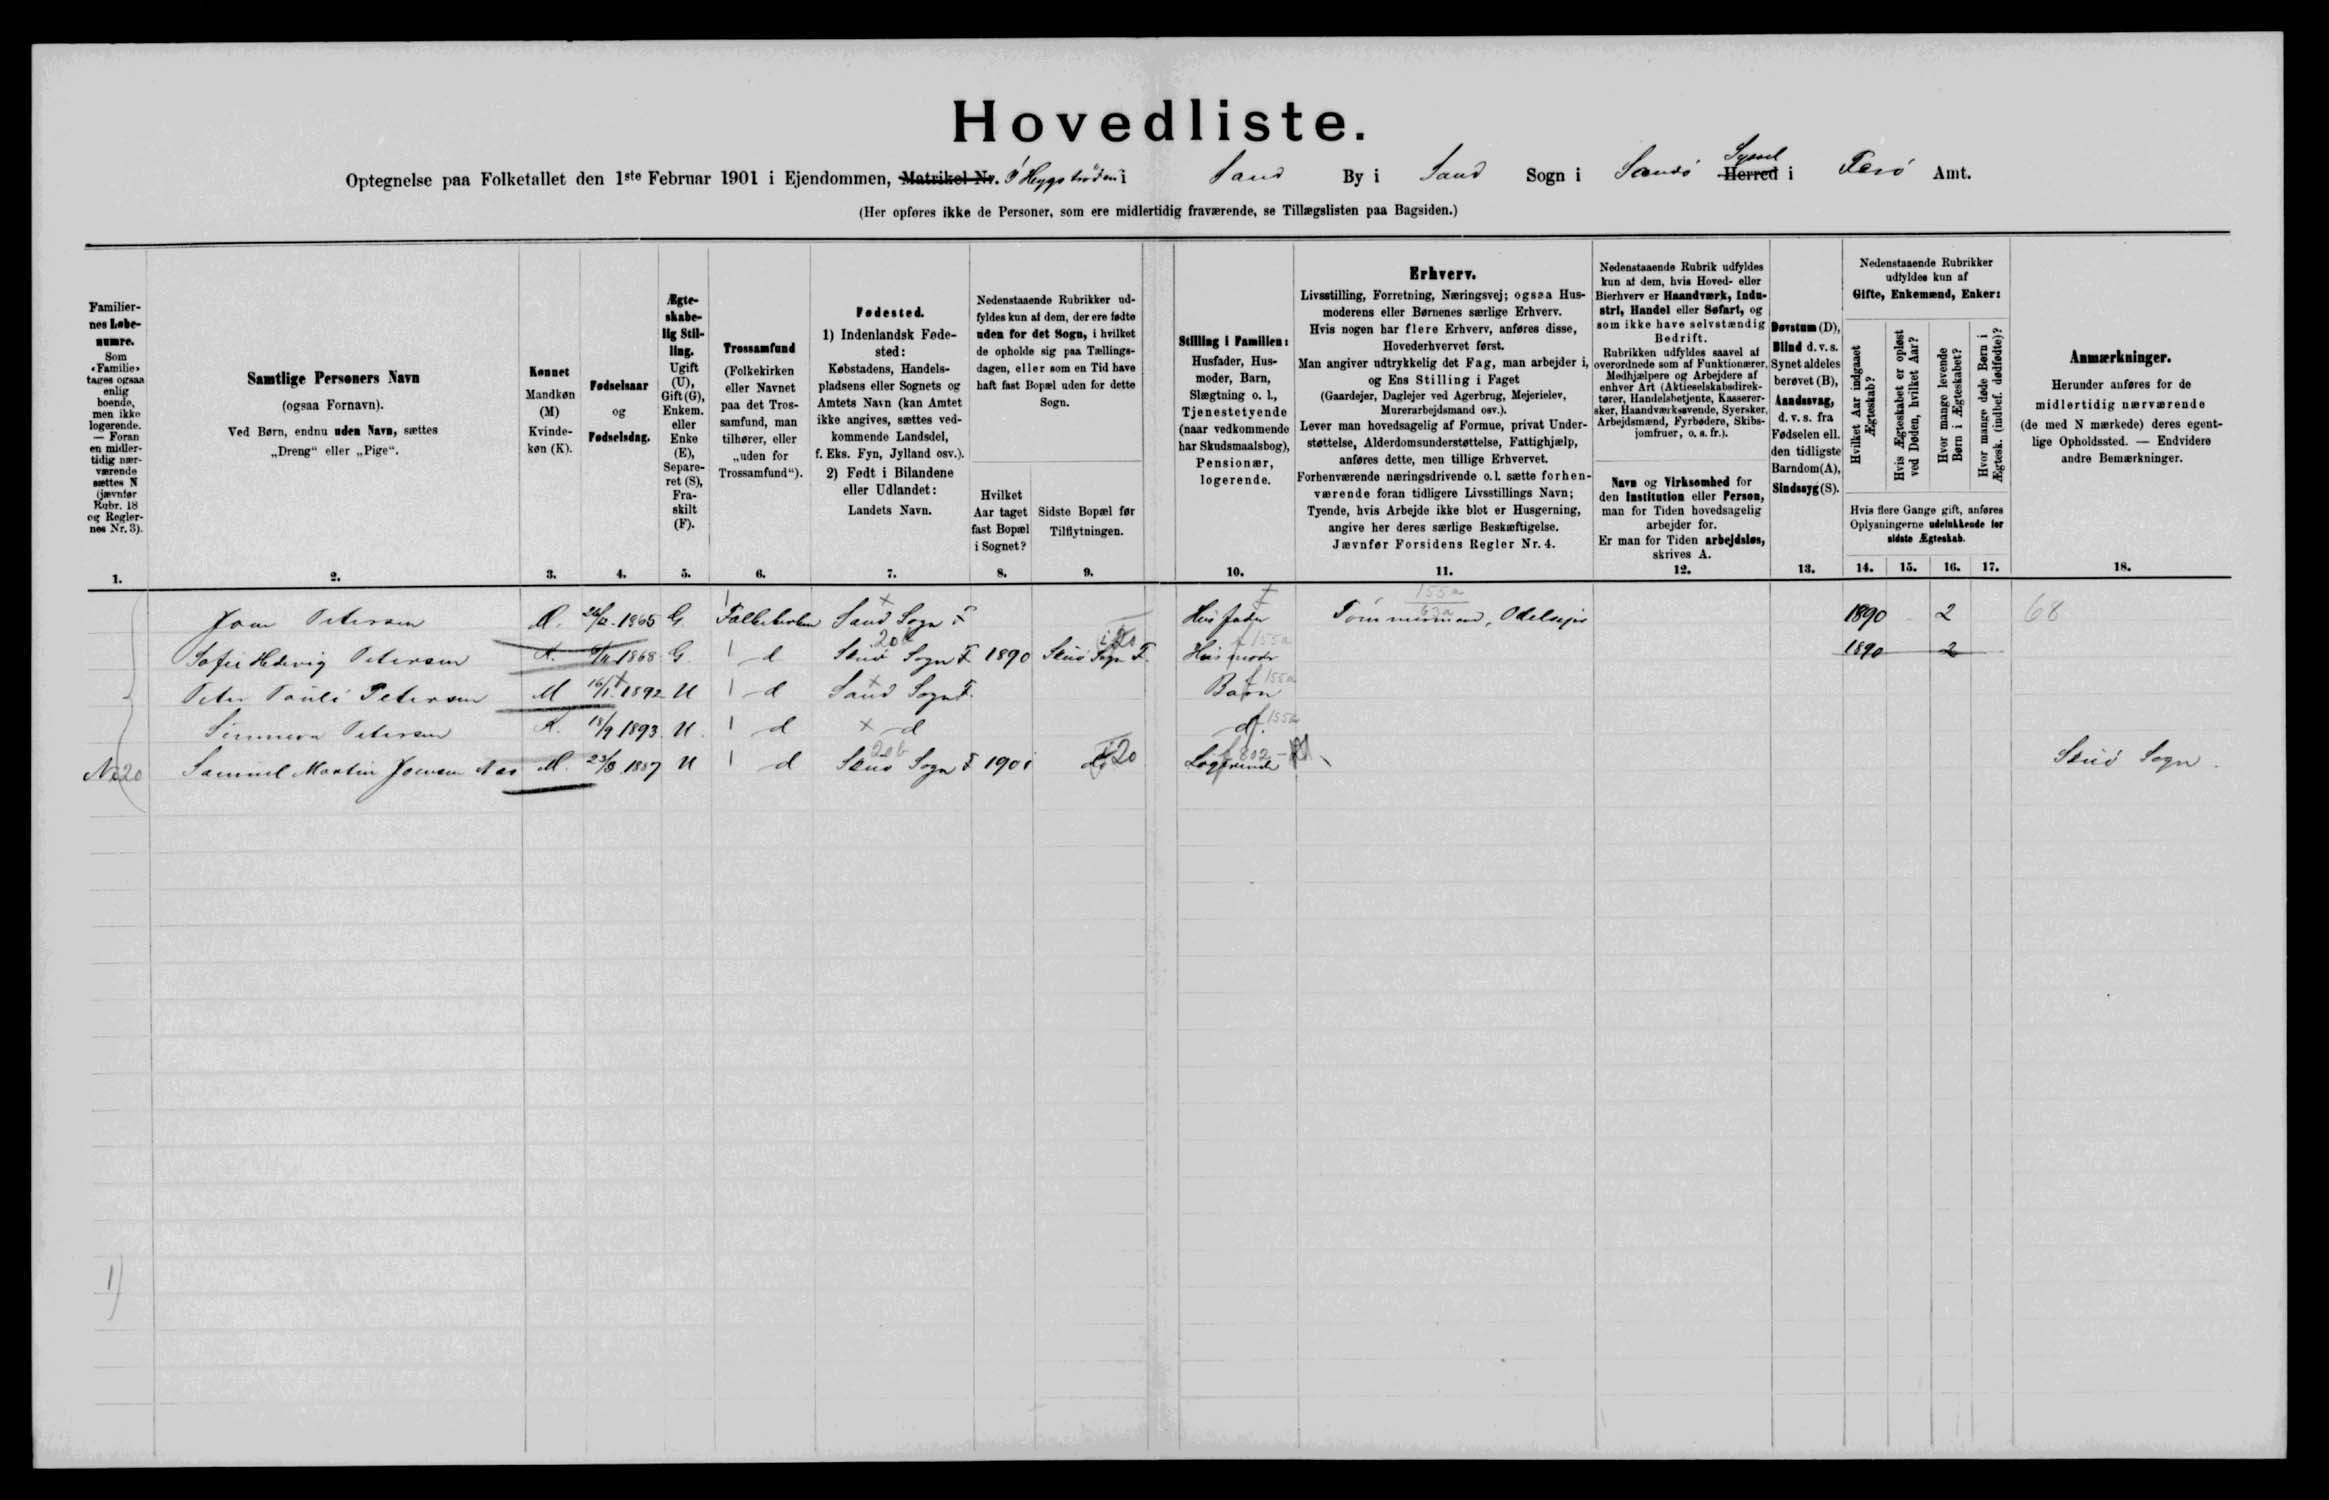 Hovedliste.
Optegnelse paa Folketallet den 1ste Februar 1901 i Ejendommen, Matrikel Nr. i Sand By i Sand Sogn i Sandö Syssel Herred i Ferö Amt.
(Her opføres ikke de Personer, som ere midlertidig fraværende, se Tillægslisten paa Bagsiden.)
Familiernes Løbenumre.
Som «Familie» tages ogsaa enlig boende, men ikke logerende. — Foran en midlertidig nærværende sættes N (jævnfør Rubr. 18 og Reglernes Nr. 3).
1.
Samtlige Personers Navn
(ogsaa Fornavn).
Ved Børn, endnu uden Navn, sættes
„Dreng“ eller „Pige“.
2.
Kønnet
Mandkøn (M)
Kvindekøn (K).
3.
Fødselsaar
og
Fødselsdag.
4.
Ægteskabelig Stilling.
Ugift (U), Gift (G), Enkem. eller Enke (E), Separeret (S), Fraskilt (F).
5.
Trossamfund
(Folkekirken eller Navnet paa det Trossamfund, man tilhører, eller „uden for Trossamfund“).
6.
Fødested.
1) Indenlandsk Fødested:
Købstadens, Handelspladsens eller Sognets og Amtets Navn (kan Amtet ikke angives, sættes vedkommende Landsdel, f. Eks. Fyn, Jylland osv.).
2) Født i Bilandene eller Udlandet:
Landets Navn.
7.
Nedenstaaende Rubrikker udfyldes kun af dem, der ere fødte uden for det Sogn, i hvilket de opholde sig paa Tællingsdagen, eller som en Tid have haft fast Bopæl uden for dette Sogn.
Hvilket Aar taget fast Bopæl i Sognet?
8.
Sidste Bopæl før Tilflytningen.
9.
Stilling i Familien:
Husfader, Husmoder, Barn, Slægtning o. l., Tjenestetyende (naar vedkommende har Skudsmaalsbog), Pensionær, logerende.
10.
Erhverv.
Livsstilling, Forretning, Næringsvej; ogsaa Husmoderens eller Børnenes særlige Erhverv.
Hvis nogen har flere Erhverv, anføres disse, Hovederhvervet først.
Man angiver udtrykkelig det Fag, man arbejder i, og Ens Stilling i Faget
(Gaardejer, Daglejer ved Agerbrug, Mejerielev, Murerarbejdsmand osv.).
Lever man hovedsagelig af Formue, privat Understøttelse, Alderdomsunderstøttelse, Fattighjælp, anføres dette, men tillige Erhvervet.
Forhenværende næringsdrivende o. l. sætte forhenværende foran tidligere Livsstillings Navn;
Tyende, hvis Arbejde ikke blot er Husgerning, angive her deres særlige Beskæftigelse.
Jævnfør Forsidens Regler Nr. 4.
11.
Nedenstaaende Rubrik udfyldes kun af dem, hvis Hoved- eller Bierhverv er Haandværk, Industri, Handel eller Søfart, og som ikke have selvstændig Bedrift.
Rubrikken udfyldes saavel af overordnede som af Funktionærer, Medhjælpere og Arbejdere af enhver Art (Aktieselskabsdirektører, Handelsbetjente, Kasserersker, Haandværkssvende, Syersker, Arbejdsmænd, Fyrbødere, Skibsjomfruer, o. s. fr.).
Navn og Virksomhed for den Institution eller Person, man for Tiden hovedsagelig arbejder for.
Er man for Tiden arbejdsløs, skrives A.
12.
Døvstum (D), Blind d. v. s. Synet aldeles berøvet (B), Aandssvag, d. v. s. fra Fødselen ell. den tidligste Barndom (A), Sindssyg (S).
13.
Nedenstaaende Rubrikker udfyldes kun af
Gifte, Enkemænd, Enker:
Hvilket Aar indgaaet Ægteskab?
Hvis Ægteskabet er opløst ved Døden, hvilket Aar?
Hvor mange levende Børn i Ægteskabet?
Hvor mange døde Børn i Ægtesk. (indbef. dødfødte)?
Hvis flere Gange gift, anføres Oplysningerne udelukkende for sidste Ægteskab.
14. 15. 16. 17.
Anmærkninger.
Herunder anføres for de midlertidig nærværende (de med N mærkede) deres egentlige Opholdssted. — Endvidere andre Bemærkninger.
18.
Petersen M. 1865 G. Folkekirken Sand Sogn F Husfader 155a 63a Tömmermand, 1890 2 68
Sofie Hedevig Petersen K. 1868 G. 1 d 20b Skuö Sogn F. 1890 Skuö Sogn F. Husmoder 155a 1890 2
Peter Pauli Petersen M 16/1 1892 U 1 d Sand Sogn F. Barn 155a
Petersen K. 18/9 1893. U. 1 d d d. 155a
N 20 Samuel Martin Joensen M. 23/8 1887 U 1 d 20b Skuö Sogn F 1901 20 Logerende 802 Skuö Sogn.
1)